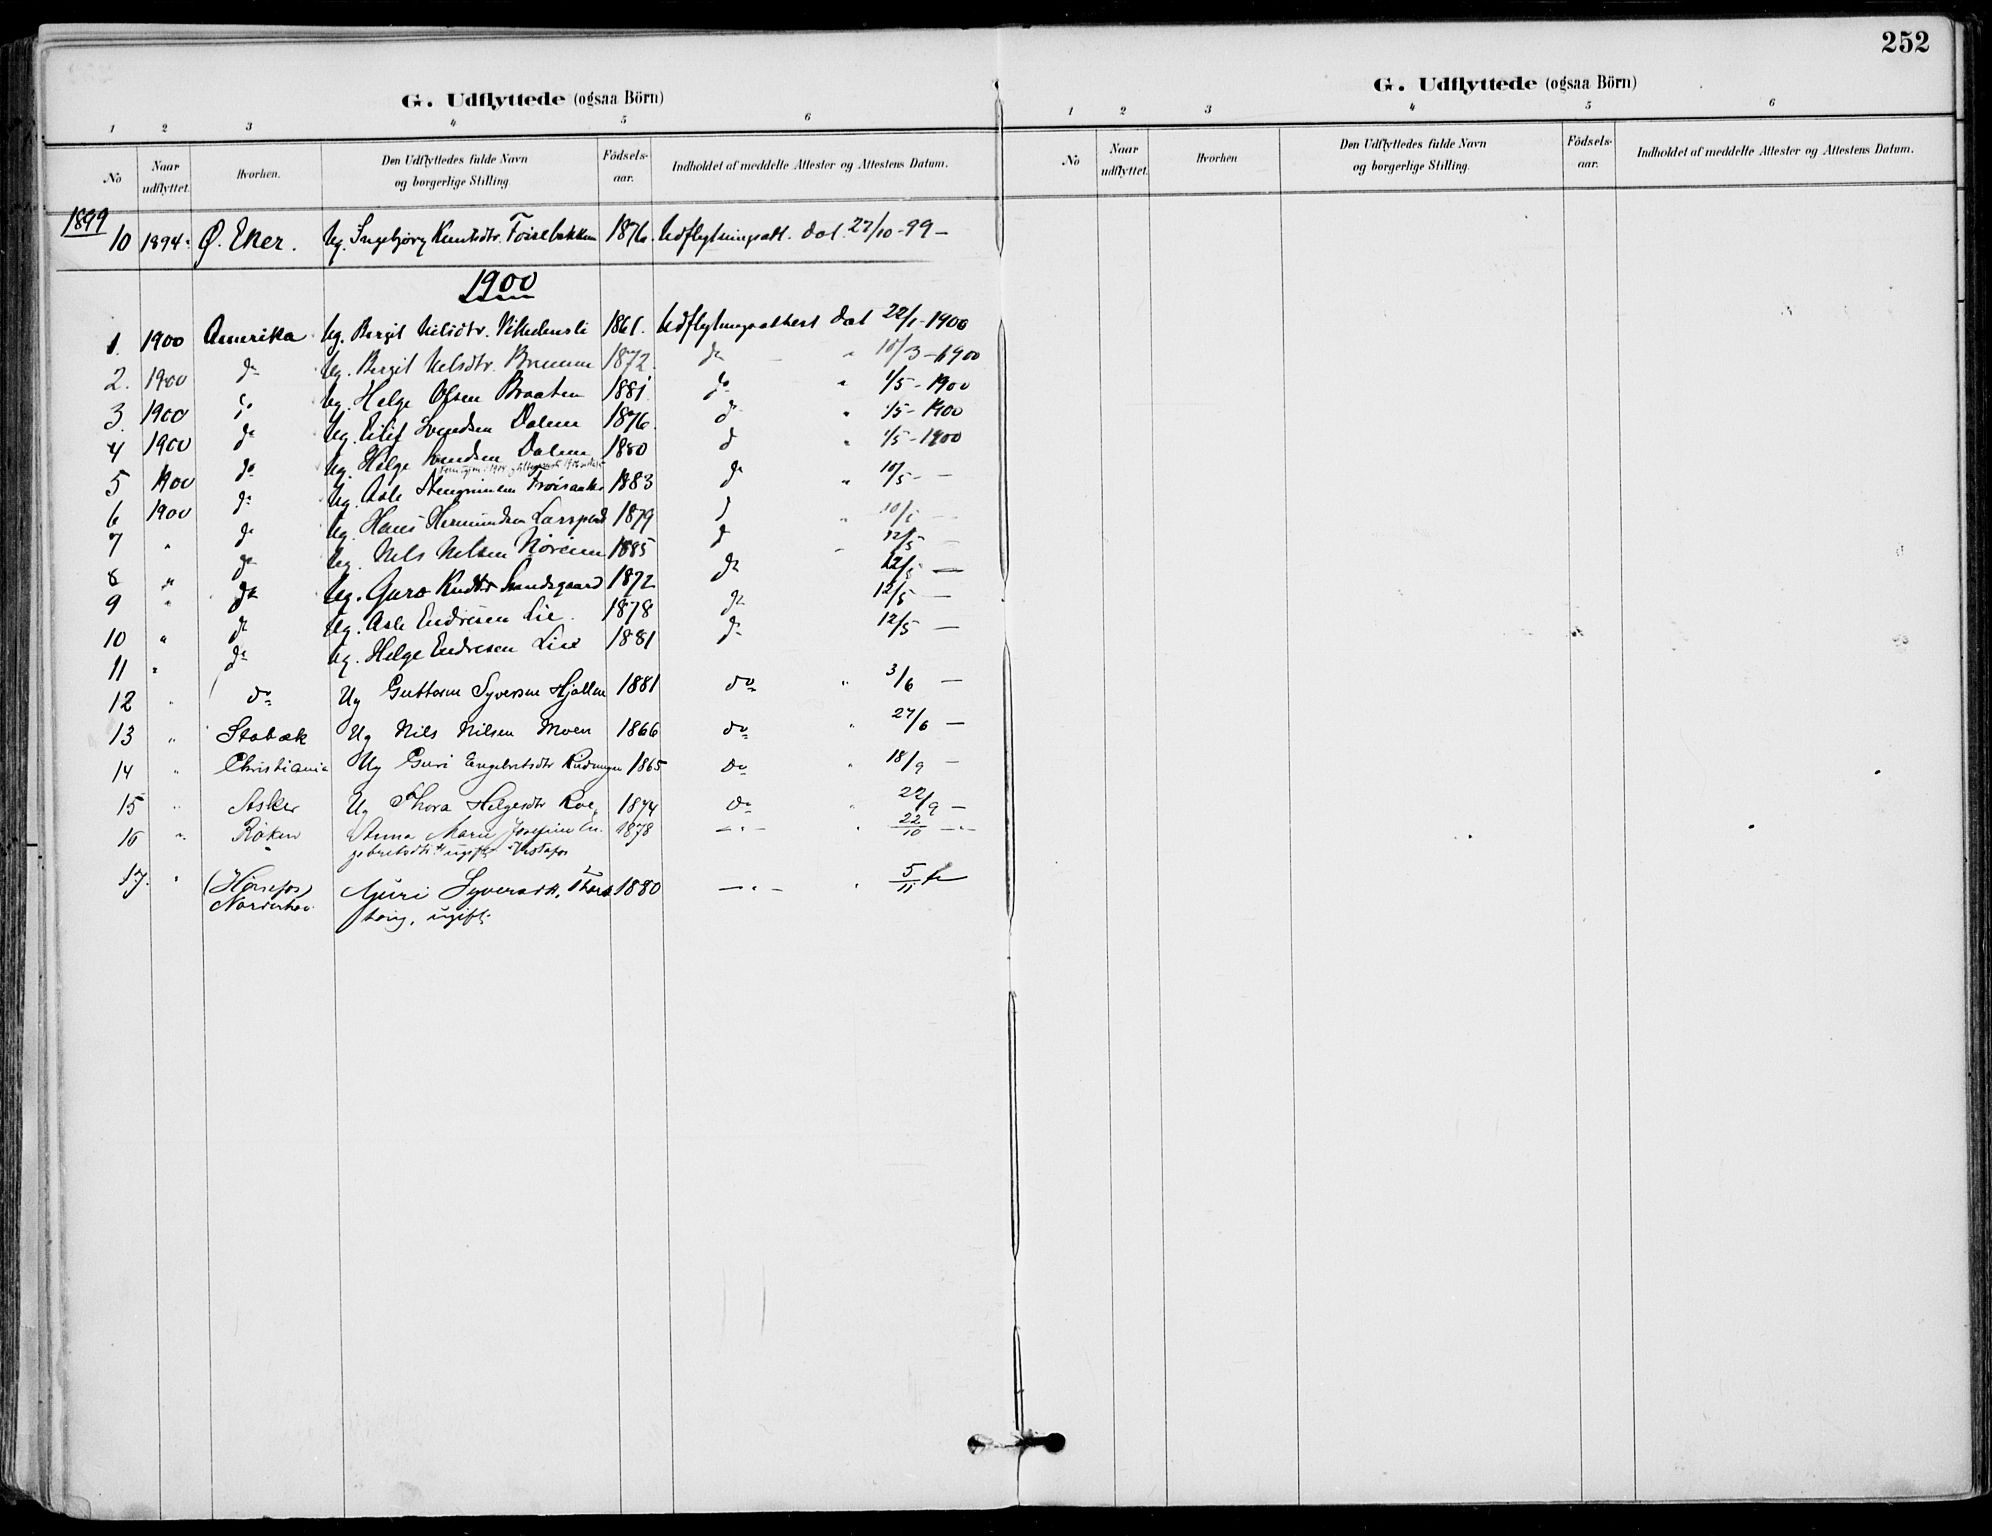 252
G. Udflyttede (ogsaa Börn)
1 2 3 4 5 6
No Naar udflyttet. Hvorhen. Den Udflyttedes fulde Navn og borgerlige Stilling Födsels-aar. Indholdet af meddelte Attester og Attestens Datum.
1899
10 1894. Ø. Eker. Ug. Ingebjørg Knutsdtr. 1876. Udflytningsatt. dat. 27/10-99 –
1900
1. 1900 Amerika Ug. Birgit Nilsdtr. 1861. Udflytningsattest dat 22/1-1900
2. 1900 do Ug. Birgit Nelsdtr. 1872. do " 10/3-1900
3. 1900 do Ug. Helge Olsen Braaten 1881 do " 1/5-1900
4 1900 do Ug. Svendsen Dalene 1876. do " 1/5-1900
5 1900 do Ug. Helge Svendsen Dalene 1880 do " 1/5-1900
6 1900 do Ug. Asle 1883 do " 10/5- –
7 " do Ug. Hans Hermundsen 1879 do " 10/5 –
8 " do Ug. Nils Nilsen 1885 do " 12/5 –
9 " do Ug. Guro Sandsgaard 1872 do 12/5 –
10 " do Ug. Asle Endresen Lie. 1878 do 12/5 –
11 " do Ug. Helge Endresen Lie 1881 do 12/5 –
12 " do Ug Guttorm Syversen 1881 do " 3/6 –
13 " Stabæk Ug Nils Nilsen Moen 1866 do " 27/6 –
14 " Christiania Ug Guri Engebretsdtr 1865 do " 18/9 –
15 " Asker Ug Thora Helgesdtr Roe 1874 do " 22/9 –
16 " Røken Anna Marie Josefine En- 1878 –"– " 22/10 –"–
gebretsdtr ugift
17. " (Hønefos) Guri Syversdtr. Thors 1880 –"– " 5/11
Norderhov ugift.
G. Udflyttede (ogsaa Börn)
1 2 3 4 5 6
No Naar udflyttet. Hvorhen Den Udflyttedes fulde Navn og borgerlige Stilling. Födsels-aar. Indholdet af meddelte Attester og Attestens Datum.